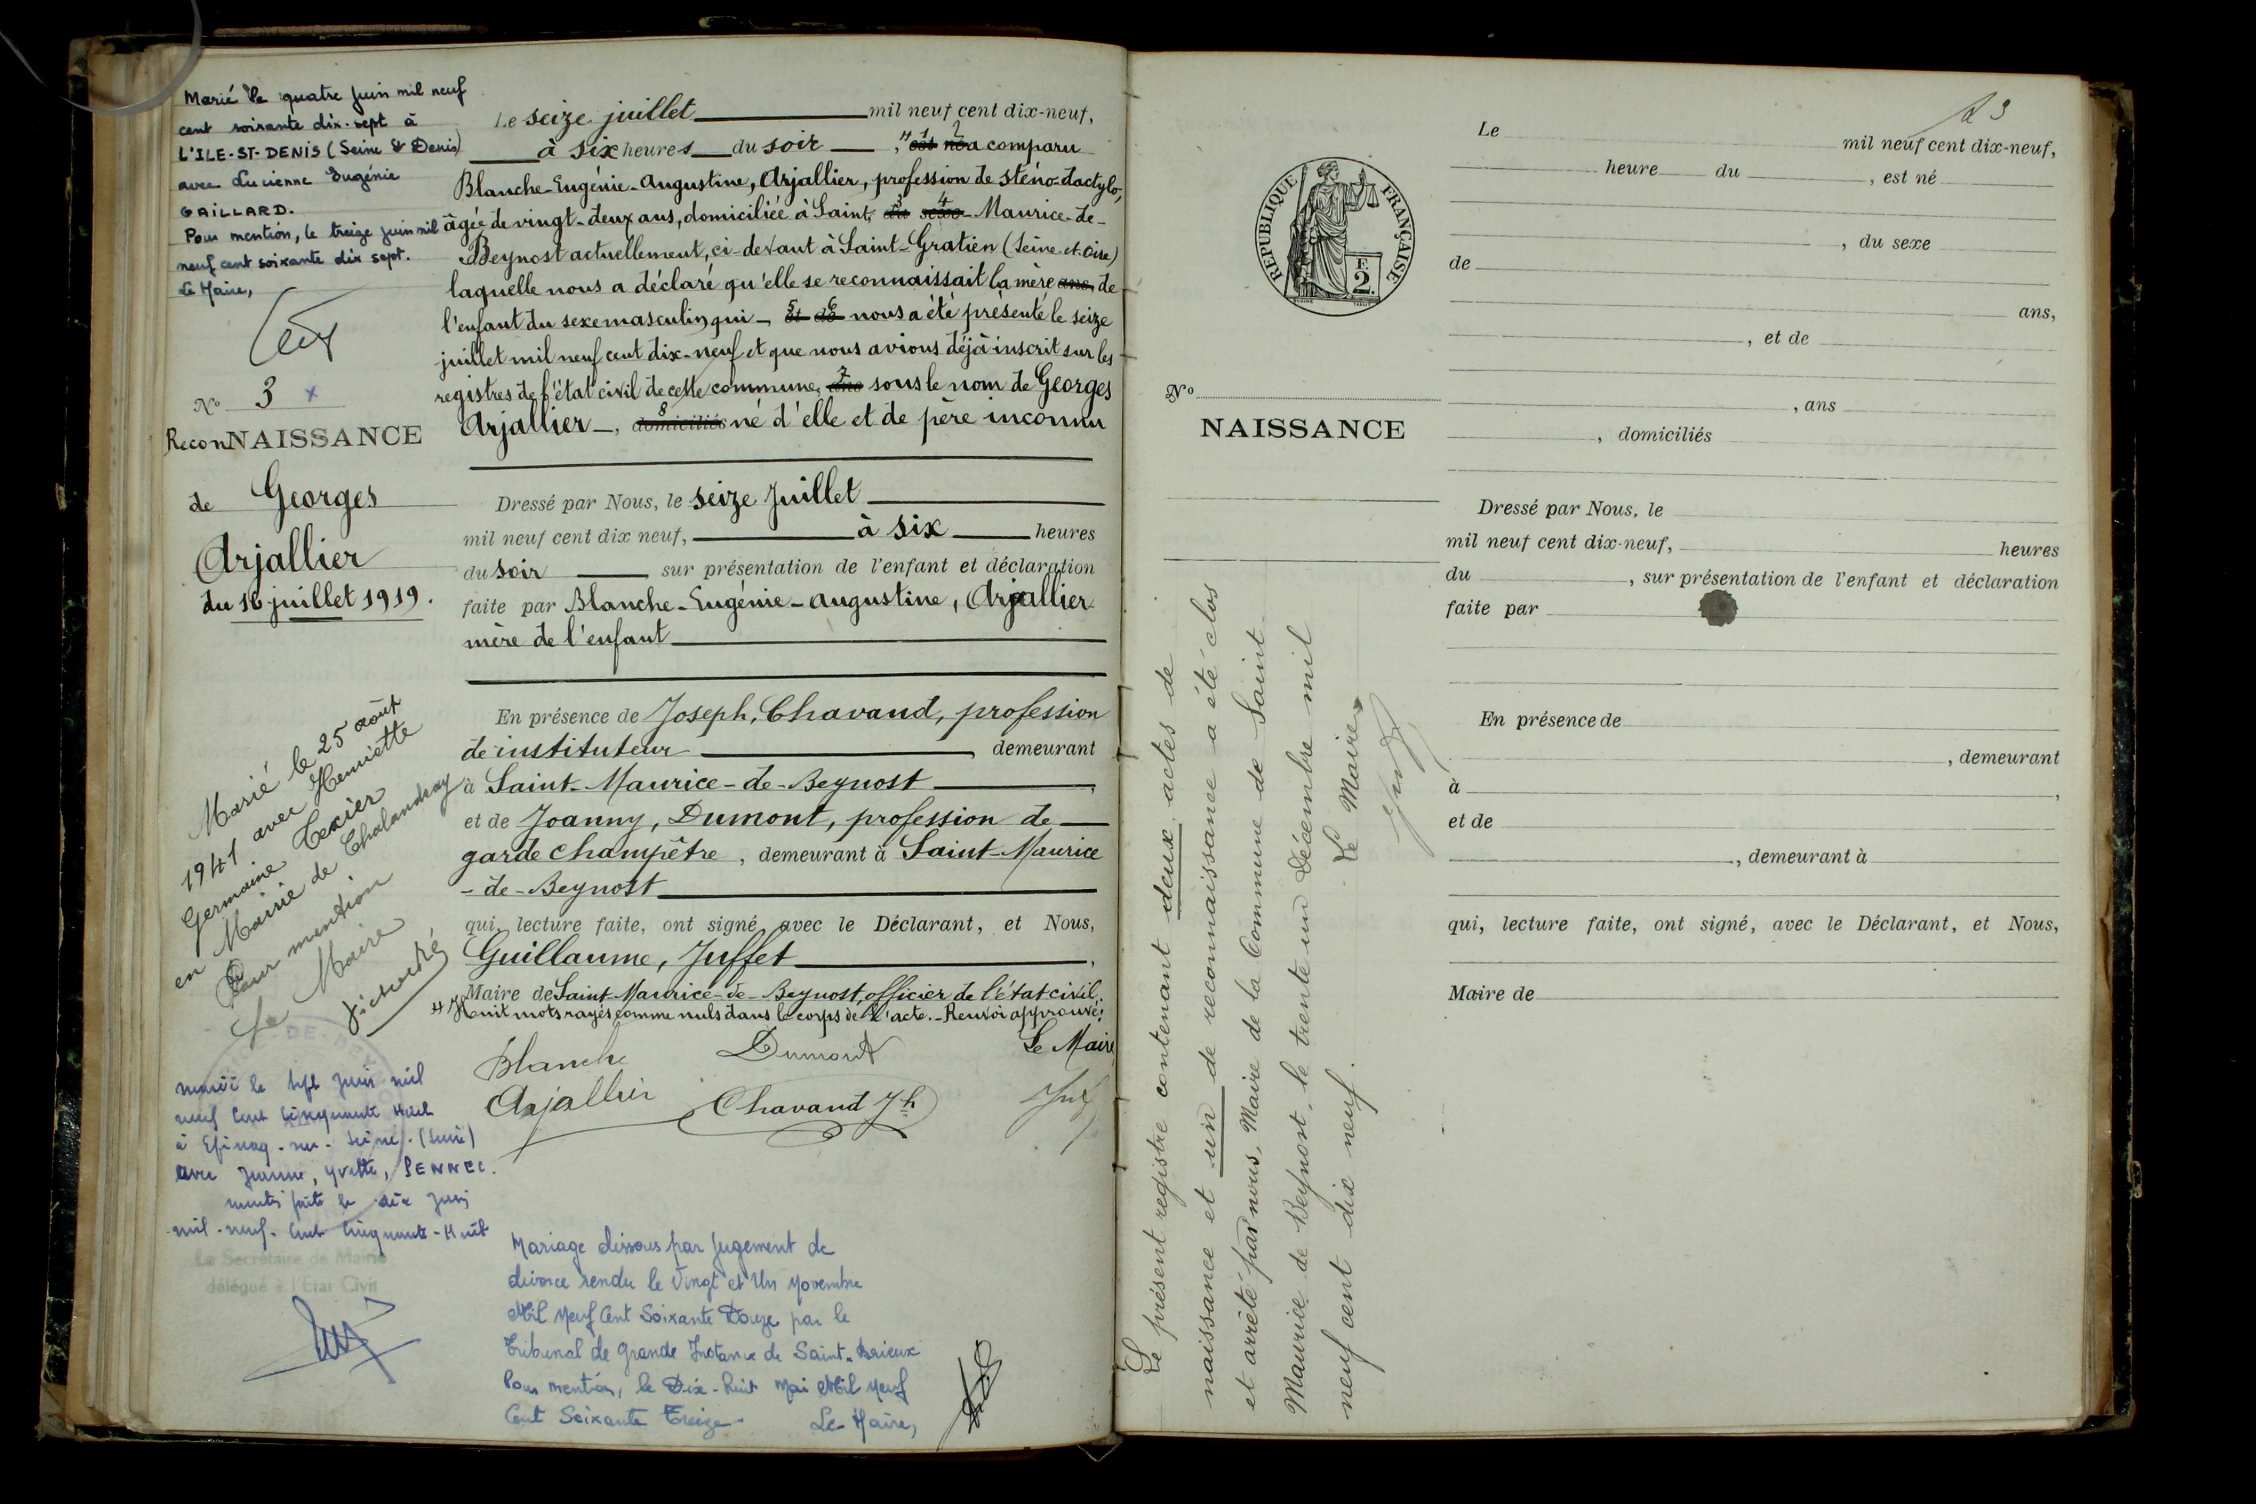 Marié le quatre juin mil neuf
cent soixante dix-sept à
L'ILE-ST-DENIS (Seine St Denis)
avec Lucienne Eugénie
GAILLARD.
Pour mention, le treize juin mil
neuf cent soixante dix sept.
Le Maire,
No 3 x
ReconNAISSANCE
de Georges
Arjallier
du 16 juillet 1919.
Marié le 25 août
1941 avec Henriette
Germaine Texier
en Mairie de Chalandray
Pour mention
Le Maire
marié le sept juin mil
neuf cent cinquante huit
à Epinay-sur-Seine (Seine)
avec Jeanne, Yvette, PENNEC.
mention faite le dix juin
mil-neuf-cent cinquante-huit
Le Secrétaire de Mairie
délégué à l'Etat Civil
Le seize juillet mil neuf cent dix-neuf,
à six heures du soir, # 1 est 2 né a comparu
Blanche-Eugénie-Augustine, Arjallier, profession de sténo-dactylo,
âgée de vingt-deux ans, domiciliée à Saint, 3 du 4 sexe-Maurice-de-
Beynost actuellement, ci-devant à Saint-Gratien (Seine-et-Oise)
laquelle nous a déclaré qu'elle se reconnaissait la mère ans, de
l'enfant du sexe masculin qui, 5 et 6 de nous a été présenté le seize
juillet mil neuf cent dix-neuf et que nous avions déjà inscrit sur les
registres de l'état civil de cette commune, 7 ans sous le nom de Georges
Arjallier, 8 domiciliés né d'elle et de père inconnu
Dressé par Nous, le seize Juillet
mil neuf cent dix neuf, à six heures
du soir sur présentation de l'enfant et déclaration
faite par Blanche-Eugénie-Augustine, Arjallier
mère de l'enfant
En présence de Joseph, Chavand, profession
de instituteur demeurant
à Saint-Maurice-de-Beynost,
et de Joanny, Dumont, profession de
garde champêtre, demeurant à Saint-Maurice
-de-Beynost
qui, lecture faite, ont signé avec le Déclarant, et Nous,
Guillaume, Juffet,
Maire de Saint-Maurice-de-Beynost, officier de l'état civil.
# Huit mots rayés comme nuls dans le corps de l'acte.-Renvoi approuvé.
Blanche Dumont Le Maire
Arjallier Chavand Jh
Mariage dissous par jugement de
divorce rendu le Vingt et Un Novembre
Mil Neuf Cent Soixante Douze par le
Tribunal de Grande Instance de Saint-Brieux
Pour mention, le Dix-huit Mai Mil Neuf
Cent Soixante Treize. Le Maire,
Le présent registre contenant deux actes de
naissance et un de reconnaissance a été clos
et arrêté par nous, Maire de la Commune de Saint-
Maurice de Beynost, le trente un Décembre mil
neuf cent dix neuf.
Le Maire
REPUBLIQUE FRANÇAISE
F.
2
No
NAISSANCE
Le mil neuf cent dix-neuf,
heure du , est né
, du sexe
de
ans,
, et de
, ans
, domiciliés
Dressé par Nous, le
mil neuf cent dix-neuf, heures
du , sur présentation de l'enfant et déclaration
faite par
En présence de
, demeurant
à ,
et de
, demeurant à
qui, lecture faite, ont signé, avec le Déclarant, et Nous,
Maire de